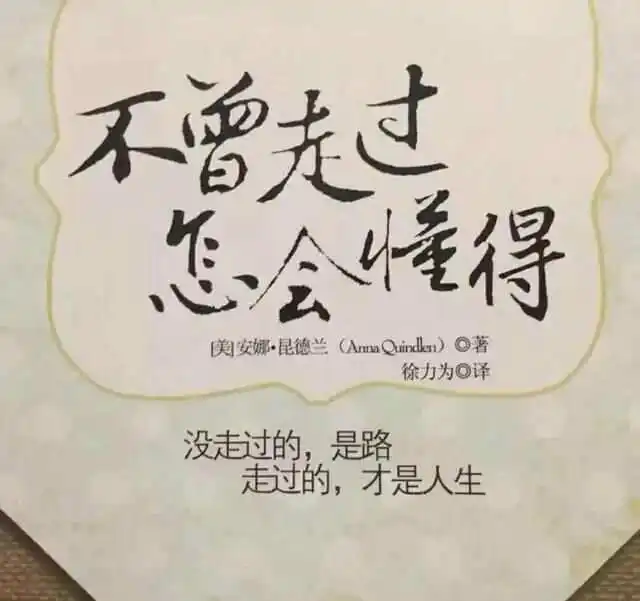 不曾走过
怎会懂得
[美]安娜•昆德兰（Anna Quindlen）◎著
徐力为◎译
没走过的，是路
走过的，才是人生